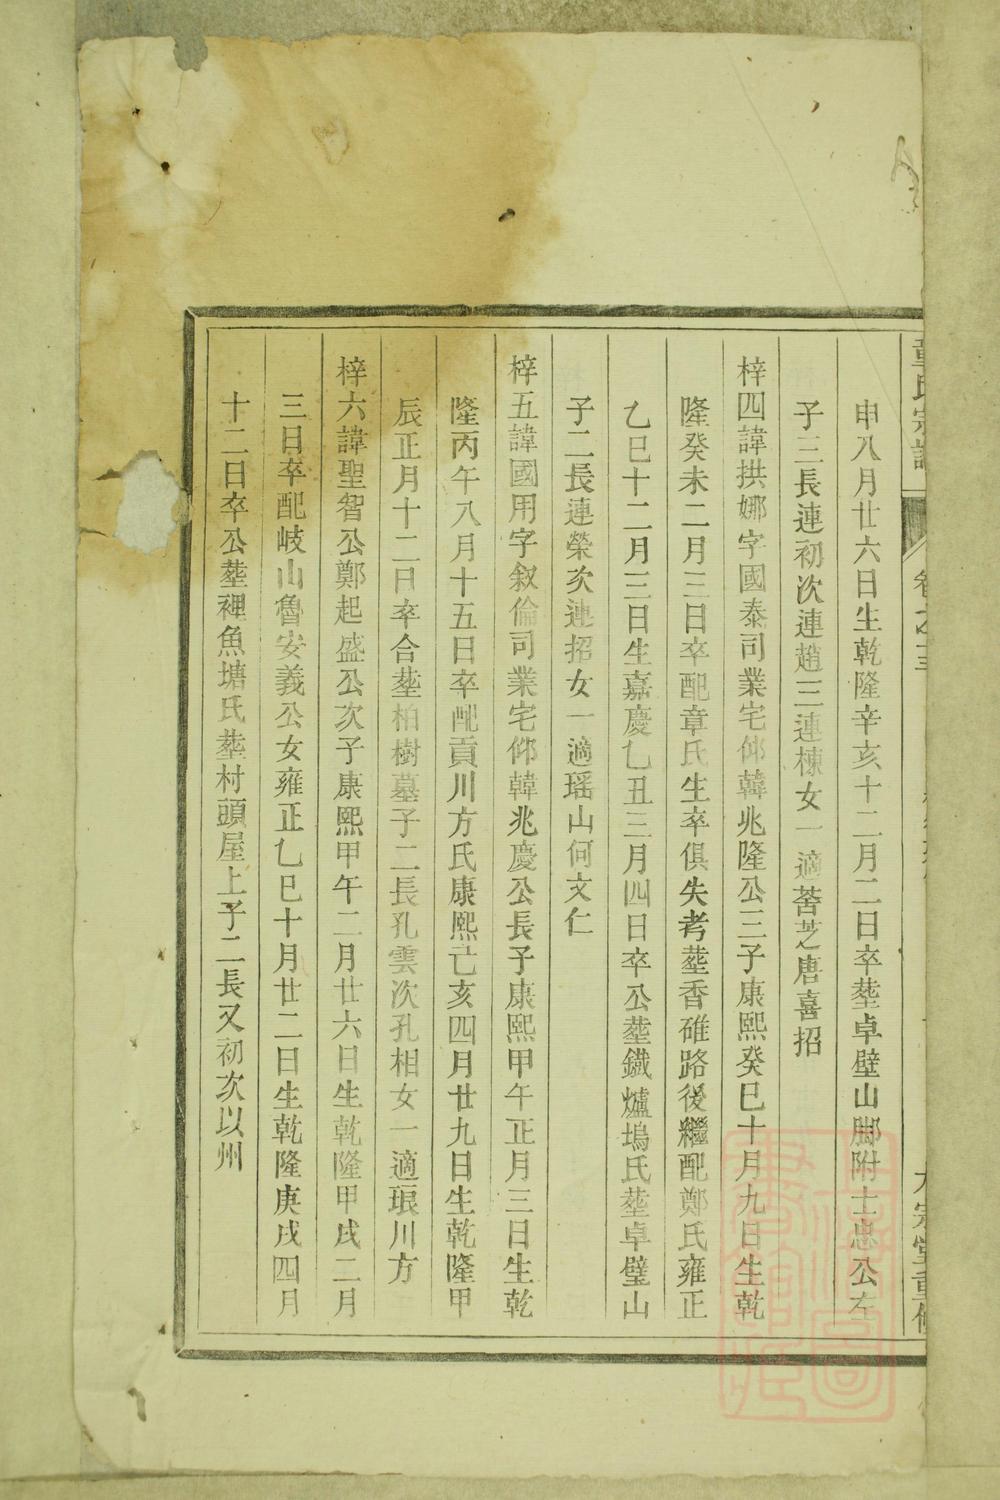 章氏宗譜 卷之三 六宗堂重修
申八月廿六日生乾隆辛亥十二月二日卒塟卓壁山脚附士忠公左
子三長連初次連趙三連棟女一適莕芝唐喜招
梓四諱拱娜字國泰司業宅仰韓兆隆公三子康熙癸巳十月九日生乾
隆癸未二月三日卒配章氏生卒俱失考塟香碓路後繼配鄭氏雍正
乙巳十二月三日生嘉慶乙丑三月四日卒公塟鐵爐塢氏塟卓壁山
子二長連榮次連招女一適瑶山何文仁
梓五諱國用字叙倫司業宅仰韓兆慶公長子康熙甲午正月三日生乾
隆丙午八月十五日卒配貢川方氏康熙己亥四月廿九日生乾隆甲
辰正月十二日卒合塟柏樹墓子二長孔雲次孔相女一適琅川方
梓六諱聖智公鄭起盛公次子康熙甲午二月廿六日生乾隆甲戌二月
三日卒配岐山魯安義公女雍正乙巳十月廿二日生乾隆庚戌四月
十二日卒公塟裡魚塘氏塟村頭屋上子二長又初次以州